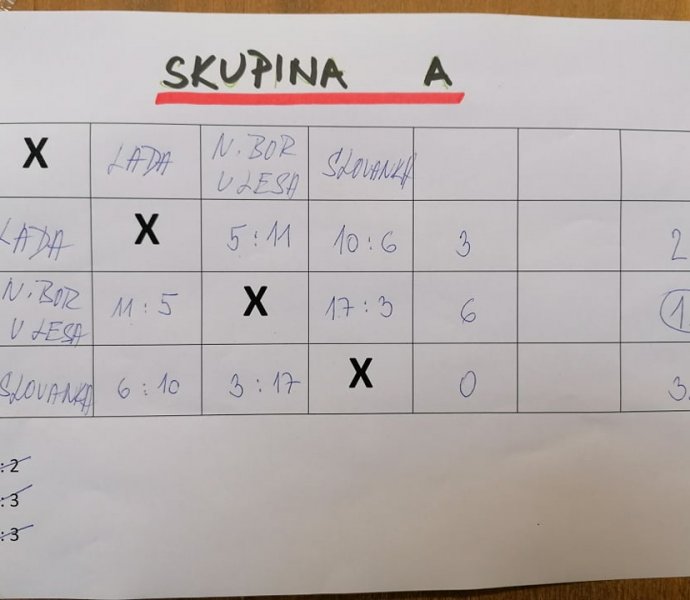 SKUPINA A
X LADA N. BOR SLOVANKA
U LESA
LADA X 5:11 10:6 3 2
N. BOR 11:5 X 17:3 6 1
U LESA
SLOVANKA 6:10 3:17 X 0 3.
: 2
: 3
: 3